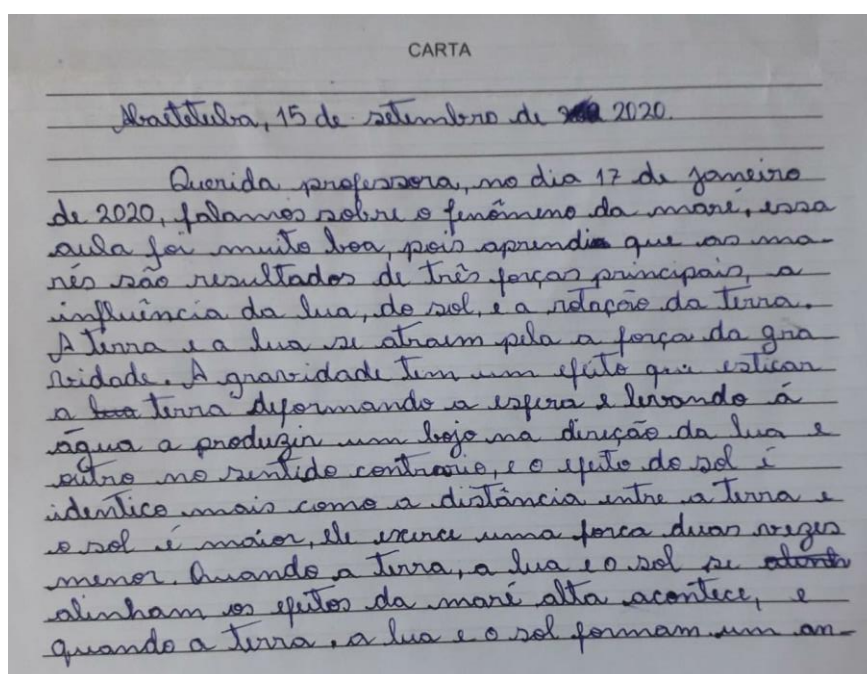 CARTA
Abaetetuba, 15 de setembro de 2020.
Querida professora, no dia 17 de janeiro
de 2020, falamos sobre o fenômeno da maré, essa
aula foi muito boa, pois aprendi que as ma-
rés são resultados de três forças principais, a
influência da lua, do sol, e a rotação da terra.
A terra e a lua se atraem pela a força da gra
vidade. A gravidade tem um efeito que esticar
a terra deformando a esfera e levando á
água a produzir um bojo na direção da lua e
outro no sentido contrario, e o efeito do sol é
identico mais como a distância entre a terra e
o sol é maior, ele exerce uma força duas vezes
menor. Quando a terra, a lua e o sol se
alinham os efeitos da maré alta acontece, e
quando a terra, a lua e o sol formam um an-